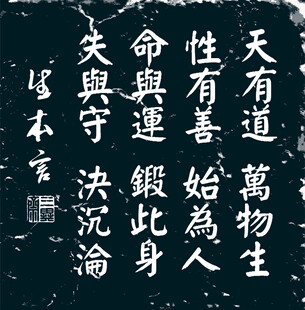 天有道 萬物生
性有善 始為人
命與運 鍛此身
失與守 決沉淪
生本言